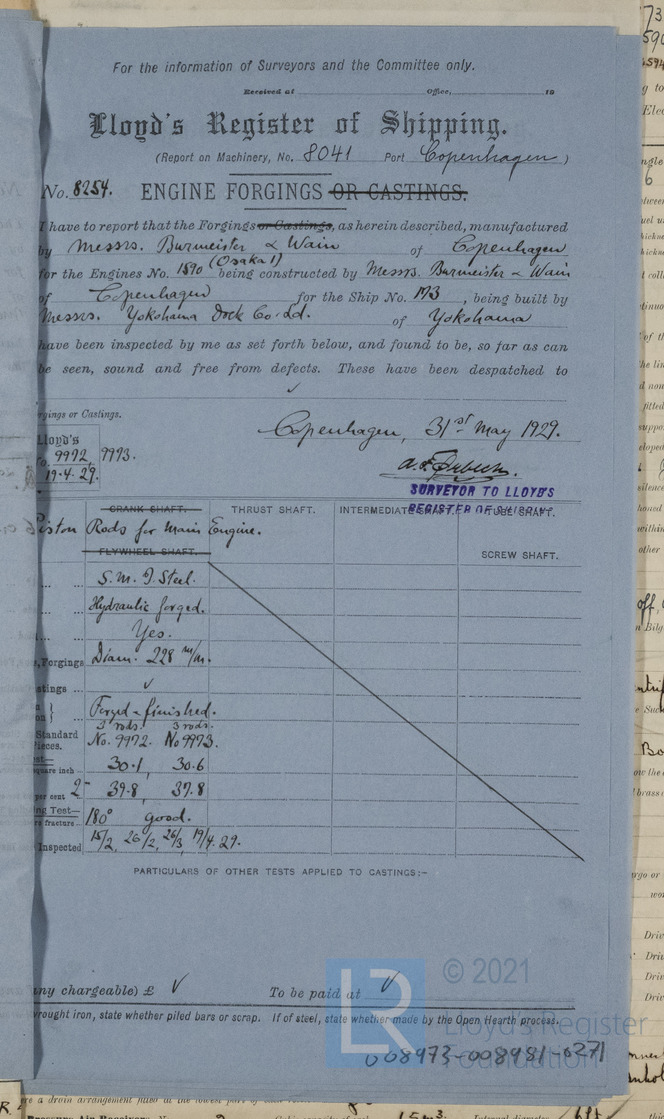 For the information of Surveyors and the Committee only.
Received at Office, 19
Lloyd's Register of Shipping.
(Report on Machinery, No. 8041 Port Copenhagen)
No. 8254. ENGINE FORGINGS OR CASTINGS.
I have to report that the Forgings or Castings, as herein described, manufactured
by Messrs. Burmeister & Wain of Copenhagen
(Osaka 1)
for the Engines No. 1590 being constructed by Messrs. Burmeister & Wain
of Copenhagen for the Ship No. 173, being built by
Messrs. Yokohama Dock Co. Ld. of Yokohama
have been inspected by me as set forth below, and found to be, so far as can
be seen, sound and free from defects. These have been despatched to
✓
rgings or Castings.
Copenhagen, 31st May 1929.
Lloyd's
No. 9972, 9973.
19.4.29.
SURVEYOR TO LLOYD'S
REGISTER OF SHIPPING.
CRANK SHAFT. THRUST SHAFT. INTERMEDIATE SHAFT. TUBE SHAFT.
Piston Rods for Main Engine.
FLYWHEEL SHAFT. SCREW SHAFT.
S. M. I. Steel.
Hydraulic forged.
Yes.
Forgings Diam. 228 m/m.
stings ... ✓
Forged & finished.
3 rods. 3 rods.
Standard
ieces. No. 9972. No 9973.
square inch 30.1, 30.6
per cent 2" 39.8, 37.8
ng Test—
re fracture 180° good.
Inspected 15/2, 26/2, 26/3, 19/4. 29.
PARTICULARS OF OTHER TESTS APPLIED TO CASTINGS:-
any chargeable) £ ✓ To be paid at ✓
wrought iron, state whether piled bars or scrap. If of steel, state whether made by the Open Hearth process.
© 2021
LR Lloyd's Register
Foundation
008973-008981-0271